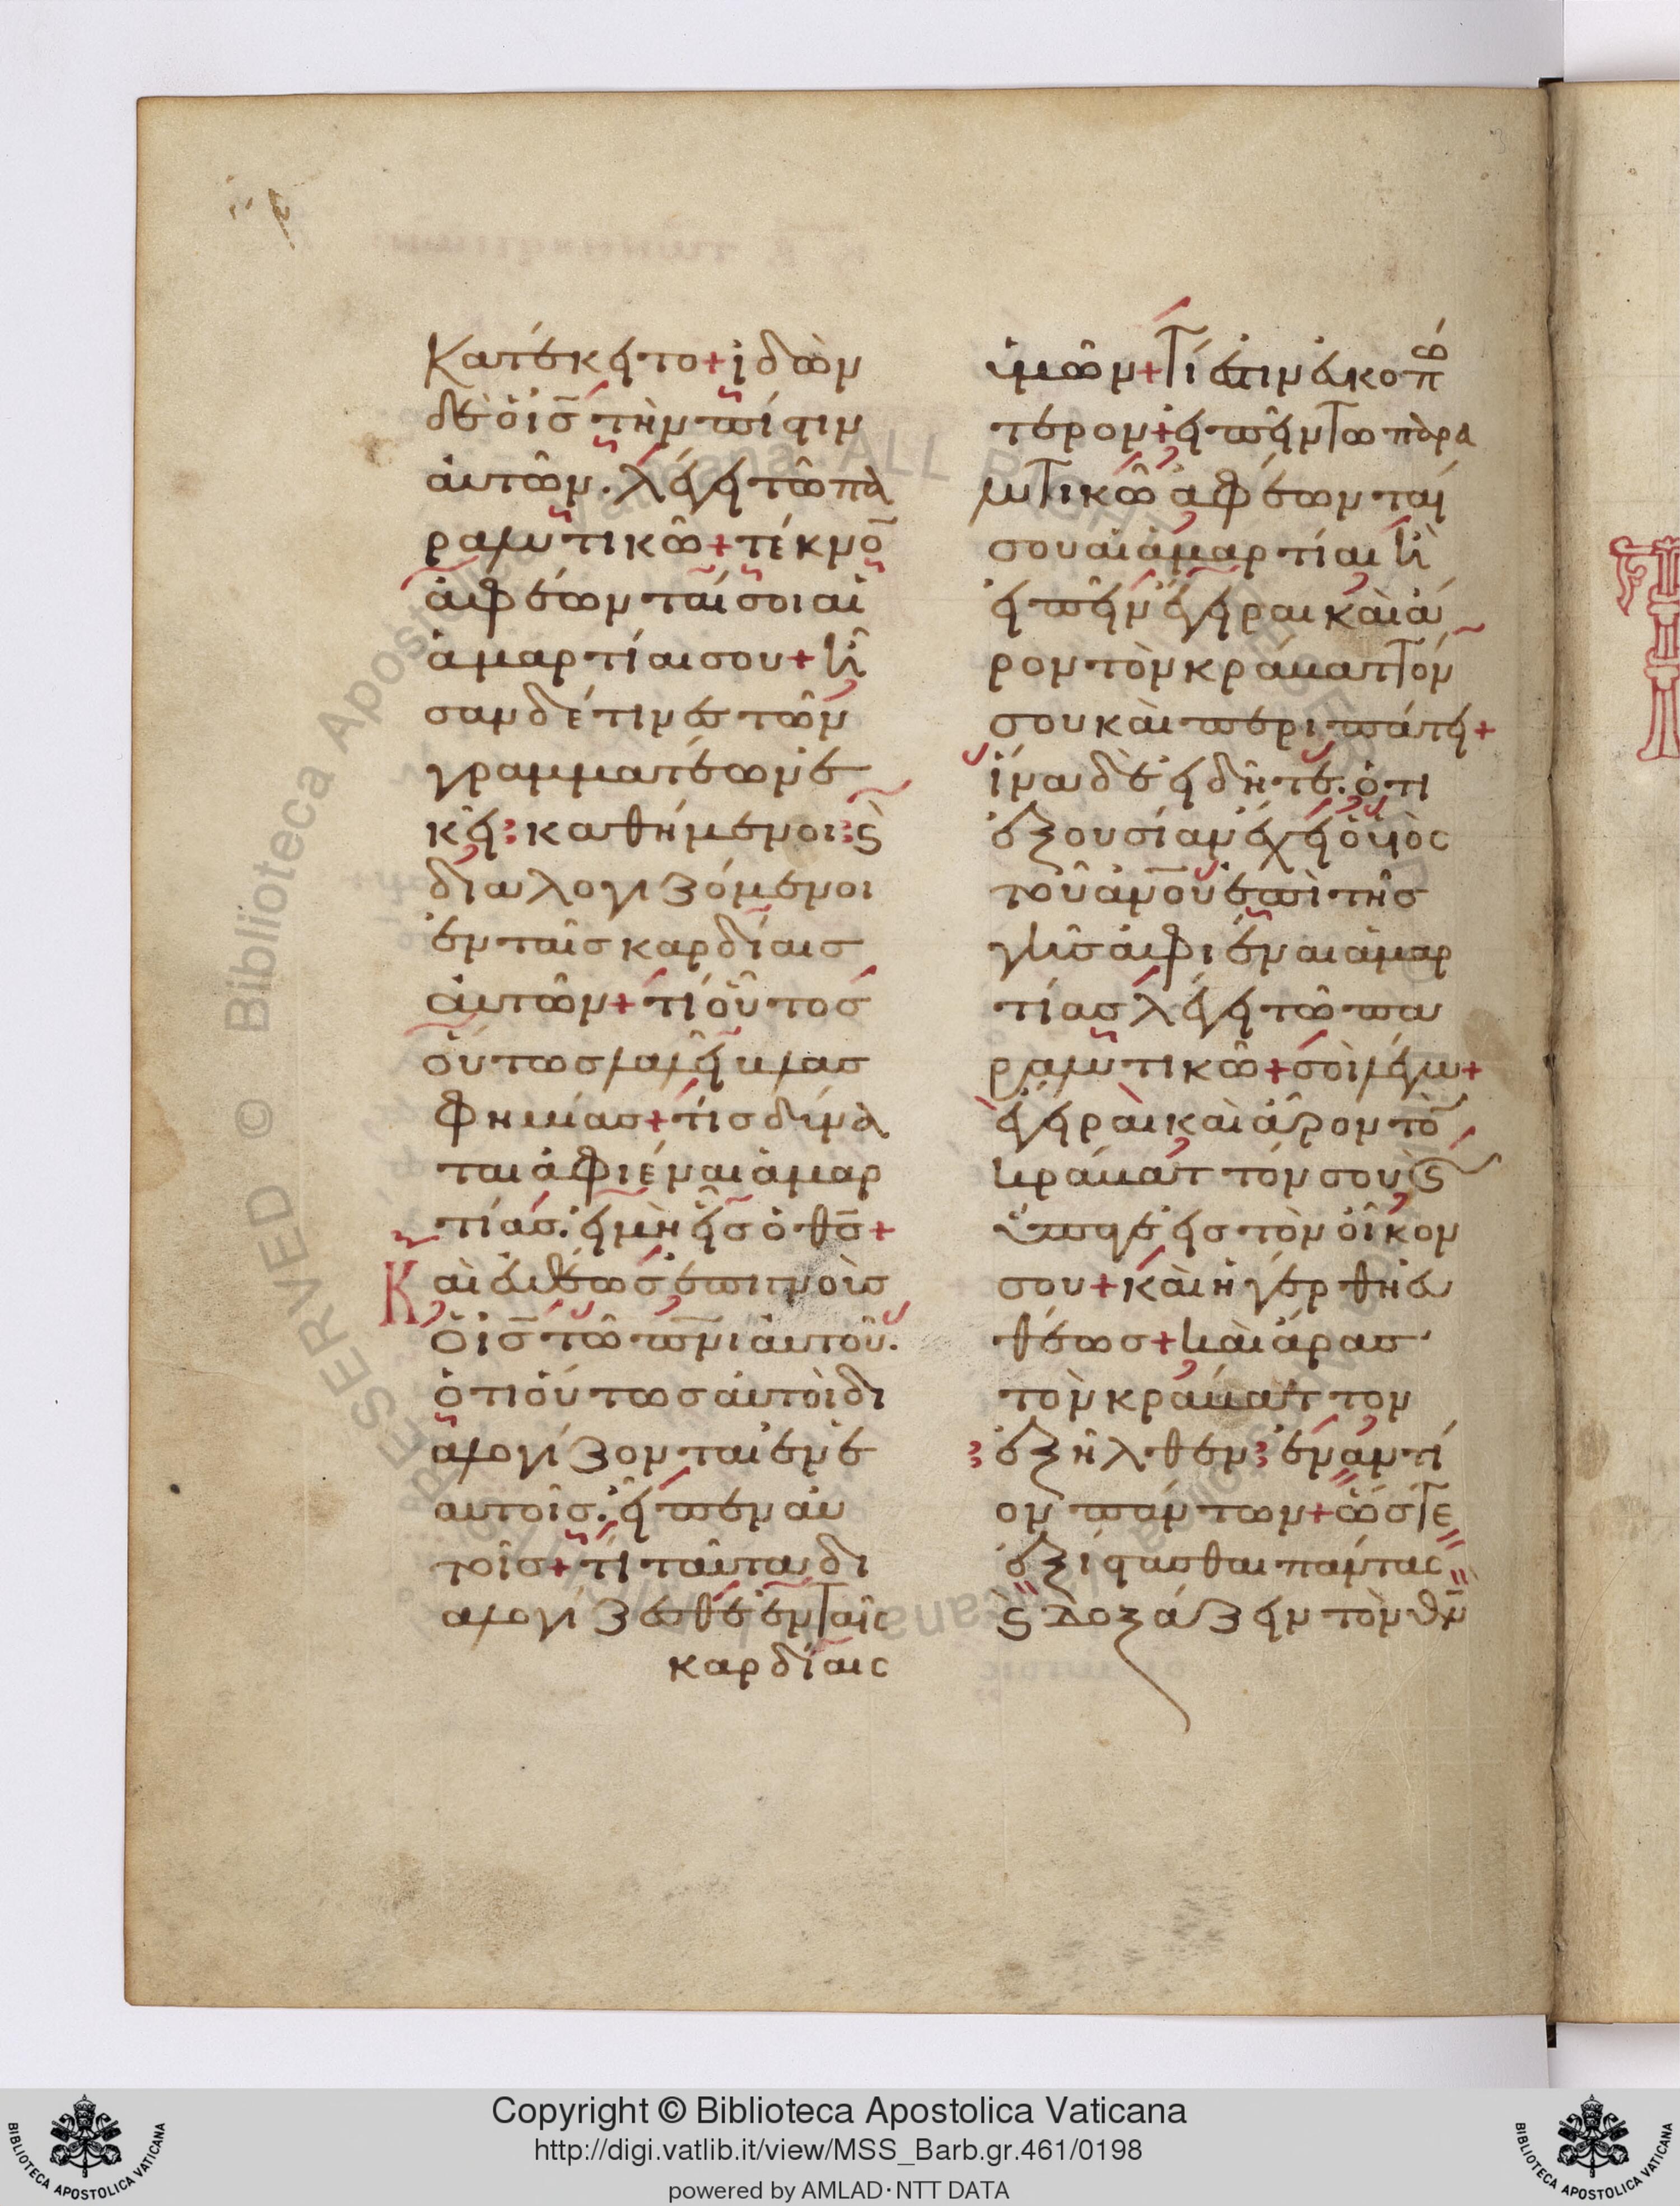 κατέκειτο + ἰδὼν
δὲ ὁ ις̄ τὴν πίστιν
αὐτῶν. λέγει τῶ πα
ραλυτικῶ + τέκνο̄
ἀφέωνταί σοι αἱ
ἁμαρτίαι σου + ἦ
σαν δέ τινες τῶν
γραμματέων ἐ
κεῖ καθήμενοι ϗ
διαλογιζόμενοι
ἐν ταῖς καρδίαις
αὐτῶν + τί οὗτος
οὕτως λαλεῖ βλας
φημίας + τίς δύνα
ται ἀφιέναι ἁμαρ
τίας. εἰ μὴ εἷς ὁ θς̄ +
Καὶ εὐθέως ἐπιγνοὺς
ὁ ις̄ τῶ πν̄ι αὐτοῦ.
ὅτι οὕτως αὐτοὶ δι
αλογίζονται ἐν ἑ
αυτοῖς. εἶπεν αὐ
τοῖς + τί ταῦτα δι
αλογίζεσθε ἐν ταῖς
καρδίαις
ὑμῶν + Τί ἐστιν εὐκοπώ
τερον + εἰπεῖν τῶ παρα
λυτικῶ ἀφέωνταί
σου αἱ ἁμαρτίαι ἢ
εἰπεῖν ἔγειραι καὶ ἆ
ρον τὸν κράβαττόν
σου καὶ περιπάτει +
ἵνα δὲ εἰδῆτε. ὅτι
ἐξουσίαν ἔχει ὁ υἱὸς
τοῦ ἀν̄ου ἐπὶ τῆς
γῆς ἀφιέναι ἁμαρ
τίας λέγει τῶ πα
ραλυτικῶ + σοὶ λέγω +
ἔγειραι καὶ ἆρον τὸ̄
κράβαττόν σου ϗ
ὕπαγε εἰς τὸν οἶκον
σου + καὶ ἠγέρθη εὐ
θέως + καὶ ἄρας
τὸν κράβαττον
ἐξῆλθεν ἐναντί
ον πάντων + ὥστε
ἐξίστασθαι πάντας
ϗ δοξάζειν τὸν θν̄
Copyright © Biblioteca Apostolica Vaticana
http://digi.vatlib.it/view/MSS_Barb.gr.461/0198
powered by AMLAD·NTT DATA
BIBLIOTECA APOSTOLICA VATICANA
BIBLIOTECA APOSTOLICA VATICANA